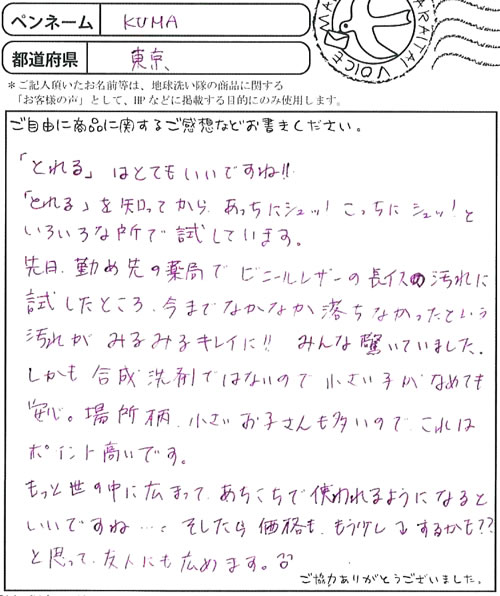 ペンネーム KUMA
都道府県 東京
MA
ARATAI VOICE
＊ご記入頂いたお名前等は、地球洗い隊の商品に関する
「お客様の声」として、HPなどに掲載する目的にのみ使用します。
ご自由に商品に関するご感想などお書きください。
「とれる」はとてもいいですね!!
「とれる」を知ってから、あっちにシュッ! こっちにシュッ!と
いろいろな所で試しています。
先日、勤め先の薬局でビニールレザーの長イスの汚れに
試したところ、今までなかなか落ちなかったという
汚れがみるみるキレイに!! みんな驚いていました。
しかも合成洗剤ではないので小さい子がなめても
安心。場所柄、小さいお子さんも多いので、これは
ポイント高いです。
もっと世の中に広まって、あちこちで使われるようになると
いいですね…。そしたら価格も、もう少し↓するかも??
と思って、友人にも広めます。
ご協力ありがとうございました。